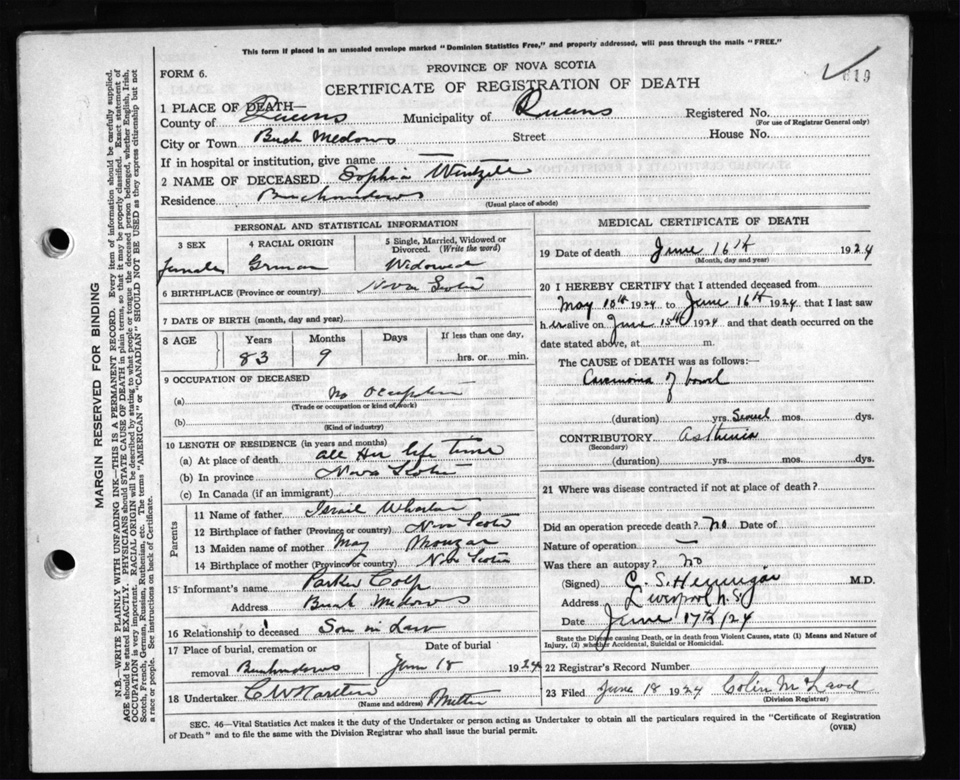 This form if placed in an unsealed envelope marked "Dominion Statistics Free," and properly addressed, will pass through the mails "FREE."
619
FORM 6.
PROVINCE OF NOVA SCOTIA
CERTIFICATE OF REGISTRATION OF DEATH
1 PLACE OF DEATH—
County of Queens Municipality of Queens Registered No.
(For use of Registrar General only)
City or Town Bush Medows Street House No.
If in hospital or institution, give name —
2 NAME OF DECEASED Sophia Wentzell
Residence
(Usual place of abode)
PERSONAL AND STATISTICAL INFORMATION
3 SEX 4 RACIAL ORIGIN 5 Single, Married, Widowed or Divorced. (Write the word)
female German Widowed
6 BIRTHPLACE (Province or country) Nova Scotia
7 DATE OF BIRTH (month, day and year)
8 AGE Years Months Days If less than one day,
83 9 hrs. or min.
9 OCCUPATION OF DECEASED
(a) no Occuption
(Trade or occupation or kind of work)
(b)
(Kind of industry)
10 LENGTH OF RESIDENCE (in years and months)
(a) At place of death all Her life time
(b) In province Nova Scotia
(c) In Canada (if an immigrant)
Parents
11 Name of father
12 Birthplace of father (Province or country) Nova Scotia
13 Maiden name of mother May
14 Birthplace of mother (Province or country) Nova Scotia
15 Informant's name Parker Colp
Address Bush Medows
16 Relationship to deceased Son in Law
17 Place of burial, cremation or removal Date of burial
June 18 1924
18 Undertaker
(Name and address)
MEDICAL CERTIFICATE OF DEATH
19 Date of death June 16th 1924
(Month, day and year)
20 I HEREBY CERTIFY that I attended deceased from
May 10th 1924 to June 16th 1924 that I last saw
h er alive on June 15th 1924 and that death occurred on the
date stated above, at m.
The CAUSE of DEATH was as follows:
Carcinoma of bowel
(duration) yrs. mos. dys.
CONTRIBUTORY Asthenia
(Secondary)
(duration) yrs. mos. dys.
21 Where was disease contracted if not at place of death?
Did an operation precede death? no Date of
Nature of operation —
Was there an autopsy? no
(Signed) M.D.
Address Liverpool N.S.
Date June 17th/24
State the Disease causing Death, or in death from Violent Causes, state (1) Means and Nature of
Injury, (2) whether Accidental, Suicidal or Homicidal.
22 Registrar's Record Number
23 Filed June 18 1924 Colin
(Division Registrar)
SEC. 46—Vital Statistics Act makes it the duty of the Undertaker or person acting as Undertaker to obtain all the particulars required in the "Certificate of Registration
of Death" and to file the same with the Division Registrar who shall issue the burial permit.
(OVER)
MARGIN RESERVED FOR BINDING
N.B.—WRITE PLAINLY WITH UNFADING INK—THIS IS A PERMANENT RECORD. Every item of information should be carefully supplied.
AGE should be stated EXACTLY. PHYSICIANS should STATE CAUSE OF DEATH in plain terms, so that it may be properly classified. Exact statement of
OCCUPATION is very important. RACIAL ORIGIN will be described by stating to what people or tongue the deceased person belonged, whether English, Irish,
Scotch, French, German, Russian, Ruthenian, etc. The terms "AMERICAN" or "CANADIAN" SHOULD NOT BE USED as they express citizenship but not
a race or people. See instructions on back of Certificate.